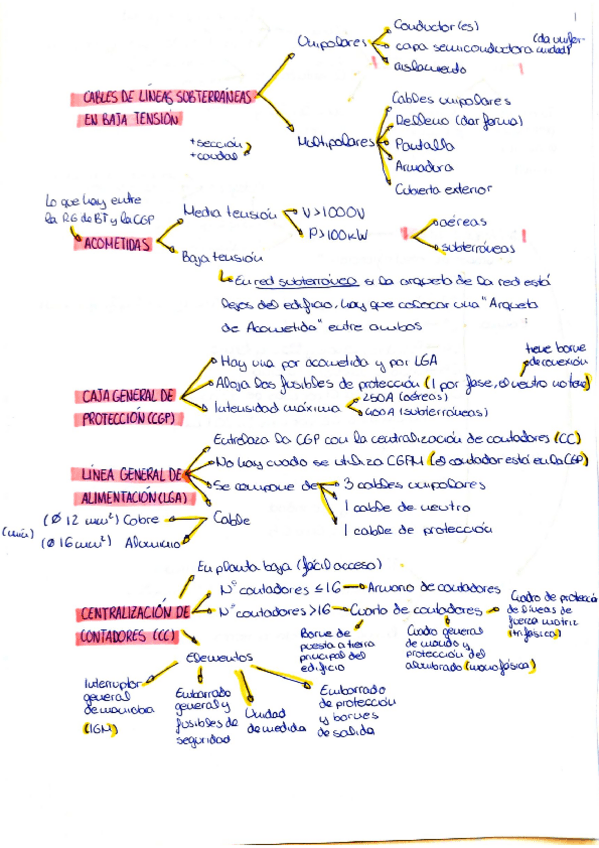 1
Conductor(es)
Unipolares
capa semiconductora (da unifor-
midad)
aislamiento
CABLES DE LÍNEAS SUBTERRÁNEAS
EN BAJA TENSIÓN
Cables unipolares
Relleno (dar forma)
+ sección
+ caudal
Multipolares
Pantalla
Armadura
Cubierta exterior
Lo que hay entre
la RG de BT y la CGP
ACOMETIDAS
Media tensión
V>1000V
P>100kW
aéreas
subterráneas
Baja tensión
En red subterránea si la arqueta de la red está
lejos del edificio, hay que colocar una "Arqueta
de Acometida" entre ambos
CAJA GENERAL DE
PROTECCIÓN (CGP)
Hay una por acometida y por LGA
tiene borne
de conexión
Aloja los fusibles de protección (1 por fase, el neutro no tiene)
Intensidad máxima
250A (aéreas)
400A (subterráneas)
LÍNEA GENERAL DE
ALIMENTACIÓN (LGA)
Entrelaza la CGP con la centralización de contadores (CC)
No hay cuando se utiliza CGPM (el contador está en la CGP)
Se compone de
3 cables unipolares
1 cable de neutro
1 cable de protección
Cable
(mín)
(Ø 12 mm²) Cobre
(Ø 16 mm²) Aluminio
CENTRALIZACIÓN DE
CONTADORES (CC)
En planta baja (fácil acceso)
Nº contadores ≤ 16
Armario de contadores
Nº contadores > 16
Cuarto de contadores
Cuadro de protección
de líneas de
fuerza motriz
(trifásica)
Borne de
puesta a tierra
principal del
edificio
Cuadro general
de mando y
protección del
alumbrado (monofásica)
Elementos
Interruptor
general
de maniobra
(IGM)
Embarrado
general y
fusibles de
seguridad
Unidad
de medida
Embarrado
de protección
y bornes
de salida